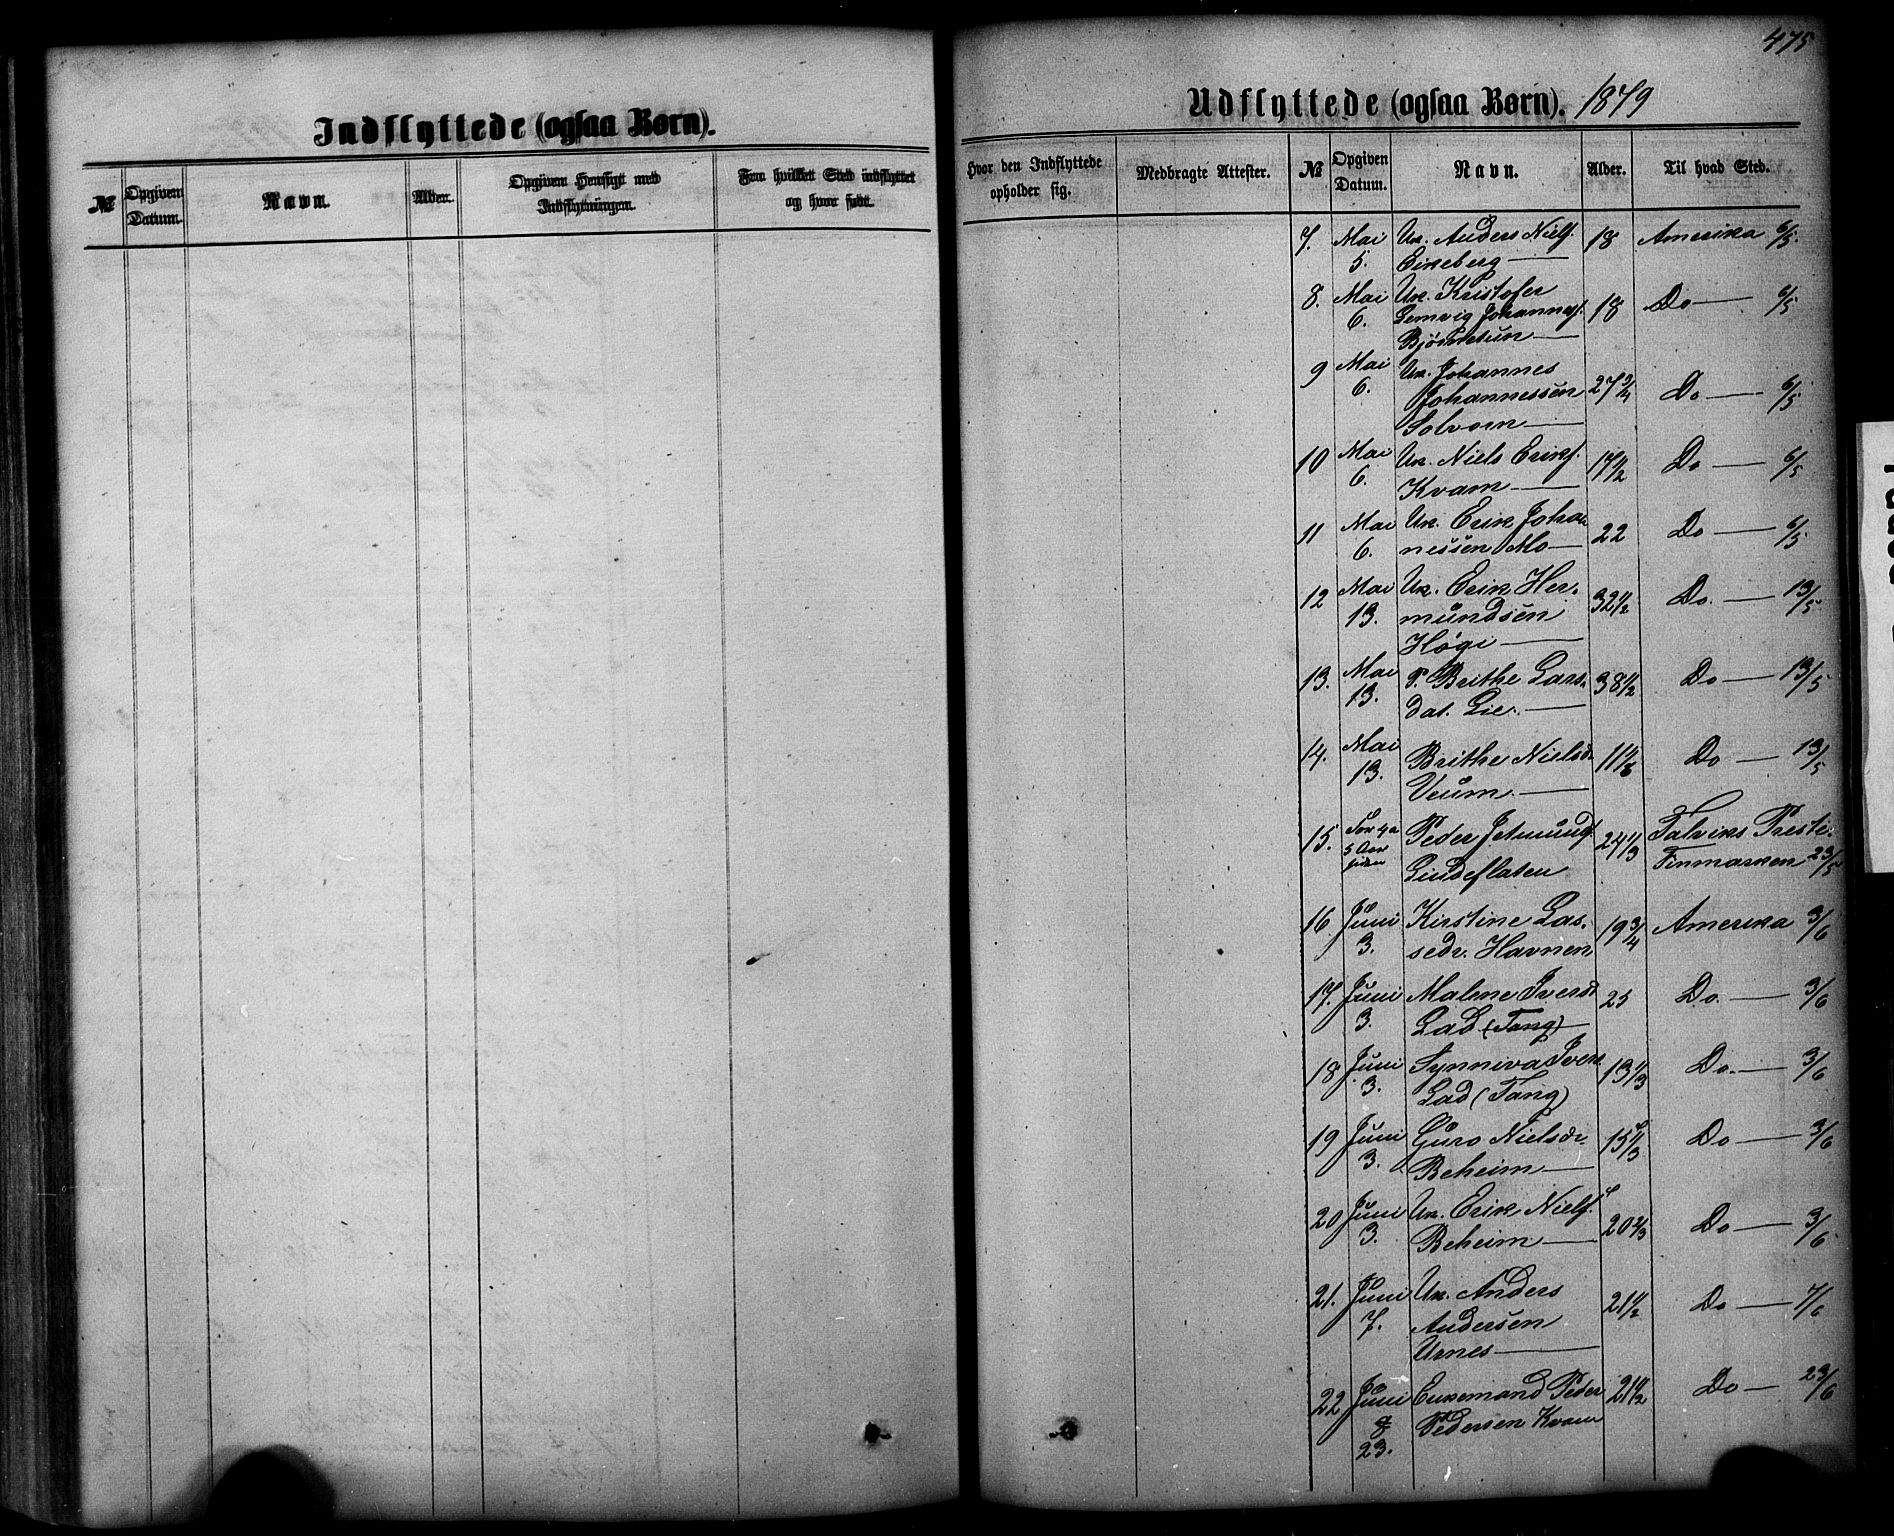 475
Indflyttede (ogsaa Børn).
№
Opgiven
Datum.
Navn.
Alder.
Opgiven Hensigt med
Indflytningen.
Fra hvilket Sted indflyttet
og hvor født.
Udflyttede (ogsaa Børn). 1879
Hvor den Indflyttede
opholder sig.
Medbragte Attester.
№
Opgiven
Datum.
Navn.
Alder.
Til hvad Sted.
7. Mai Uk. Anders Nielſ. 18 Amerika 6/5.
5. Eikeberg
8. Mai Uk. Kristofer
6. Lemvig Johannesſ. 18 Do 6/5
Bjørnetun
9 Mai Uk. Johannes
6. Johannessen 27 3/4 Do 6/5
Solvorn
10 Mai Uk. Niels Erikſ. 17 1/2 Do 6/5
6. Kvam
11 Mai Uk. Erik Johan
6. nessen Mo 22 Do 6/5
12 Mai Uk. Erik Her-
13. mundsen 32 1/2 Do. 13/5
Høgi
13. Mai P. Brithe Lars- 38 1/2 Do 13/5
13. dat. Lie.
14. Mai Brithe Nielsd. Do 13/5
13. Veum.
15. For 4 a Peder Jetmundſ. 24 1/3 Talviks Preste-
5 Aar
siden Lindeflaten Finmarken 23/5
16 Juni Kirstine Las- 19 3/4 Amerika 3/6
3. sedr. Havnen
17. Juni Malene Iversd 25 Do. 3/6
3. Lad (Tang)
18 Juni Synniva Iversd. 13 1/3 Do. 3/6
3. Lad (Tang)
19 Juni Guro Nielsdr. 15 1/3 Do 3/6
3. Beheim
20 Juni Uk. Erik Nielſ. 20 2/3 Do 3/6
3. Beheim
21. Juni Uk. Anders 21 1/2 Do 7/6
7. Andersen
Urnes
22 Juni Enkemand Peder 21 1/2 Do 23/6
Pedersen Kvam
23.